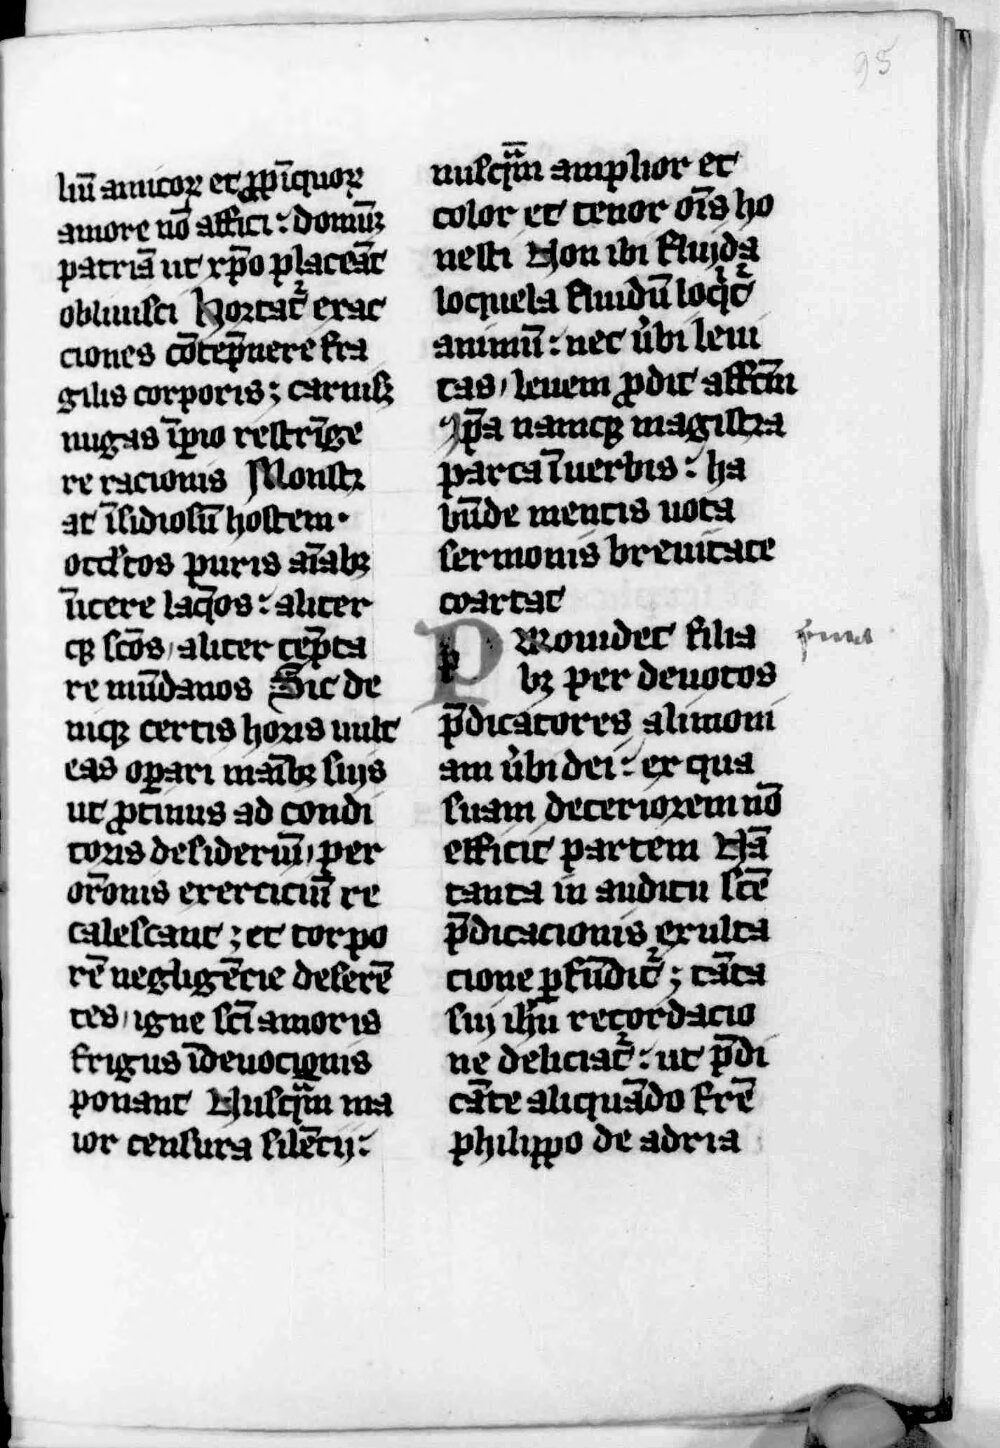 95
liū amicoꝝ et ꝓpīquoꝝ
amore nō affici : domūqꝫ
patriā ut xp̄o placeāt
obliuisci Hortat᷑ exac
ciones cōtēpnere fra
gilis corporis ; carnisqꝫ
nugas īpio restrīge
re racionis Monstr
at īsidiosū hostem ·
occl̓tos puris aīabꝫ
īicere laq̄os : aliter
qꝫ sc̄os / aliter tēpta
re mūdanos Sic de
niqꝫ certis horis uult
eas oꝑari maībꝫ suis
ut ꝓtinus ad condi
toris desideriū / per
or̄onis exerciciū re
calescant ; et torpo
rē negligēcie deserē
tes / igne sc̄i amoris
frigus īdeuocionis
ponant Nusq̄m ma
ior censura silēcij :
nusq̄m amplior et
color et tenor oīs ho
nesti Non ibi fluida
loquela fluidū loqit᷑
animū : nec u̓bi leui
tas / leuem ꝓdit affc̄m
Ip̄a namqꝫ magistra
parca ī uerbis : ha
būde mentis uota
sermonis breuitate
coartat
p PRouidet filia
bꝫ per deuotos
p̄dicatores alimoni
am u̓bi dei : ex qua
suam deteriorem nō
efficit partem Nā
tanta in auditu sc̄e
p̄dicacionis exulta
cione ꝑfūdit᷑ ; tāta
sui ih̄u recordacio
ne deliciat᷑ : ut p̄di
cāte aliquādo fr̄e
philippo de adria